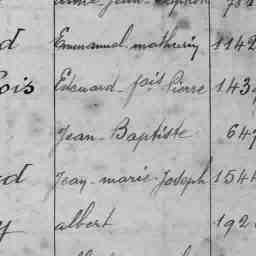 d Emmanuel mathurin 1142
ois Edouard - fois Pierre 143
Jean - Baptiste 647
d Jean - marie - Joseph 1544
y albert 192